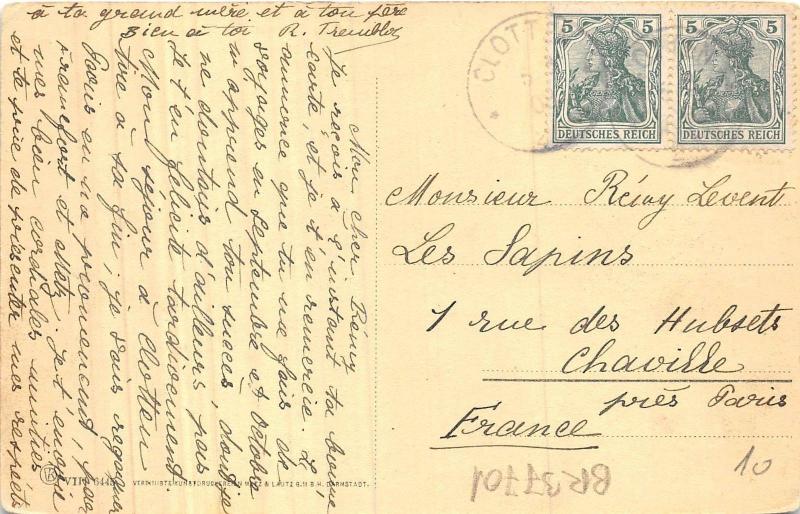 Mon cher Rémy
Je reçois à l'instant ta bonne
carte, et je t'en remercie. L'
annonce que tu me fais de
voyages en Septembre et Octobre
m'apprend ton succès, dont je
ne doutais d'ailleurs pas
Je t'en félicite tardivement.
Mon séjour à Clotten
tire à sa fin; je vais regagner
Paris en me promenant, par
Francfort et Metz. Je t'envoie
mes bien cordiales amitiés
et te prie de présenter mes respects
à ta grand mère et à ton père
Bien à toi R. Tremblot
CLOTT
5 5
DEUTSCHES REICH
5 5
DEUTSCHES REICH
Monsieur Rémy Levent
Les Sapins
1 rue des Hubsets
Chaville
près Paris
France
10
BK37701
VEREINIGTE KUNSTDRUCKEREIEN METZ & LAUTZ G.M.B.H. DARMSTADT.